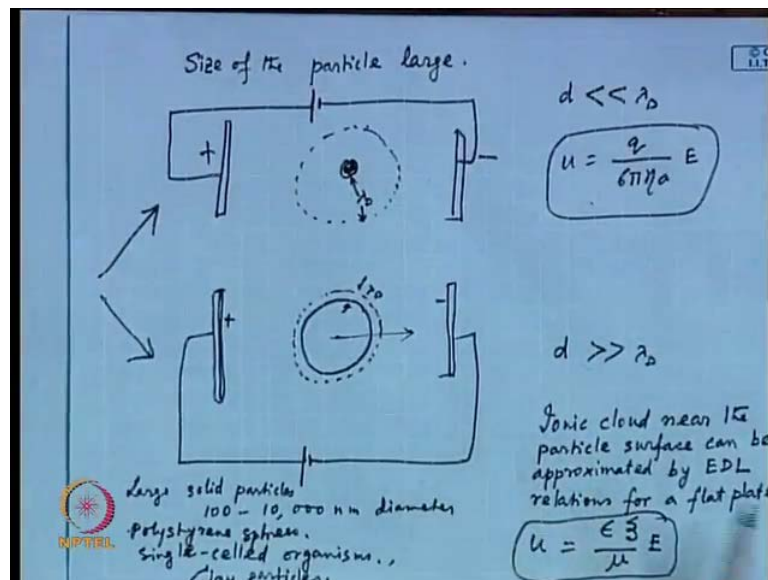 Size of the particle large.
© C
I.I.T
d << λD
u = q / 6πηa E
+
−
λD
+
λD
-
d >> λD
Ionic cloud near the
particle surface can be
approximated by EDL
relations for a flat plate
u = ϵ ξ / μ E
Large solid particles
100 - 10,000 nm diameter
Polystyrene spheres.
Single-celled organisms.,
Clay particles.
NPTEL